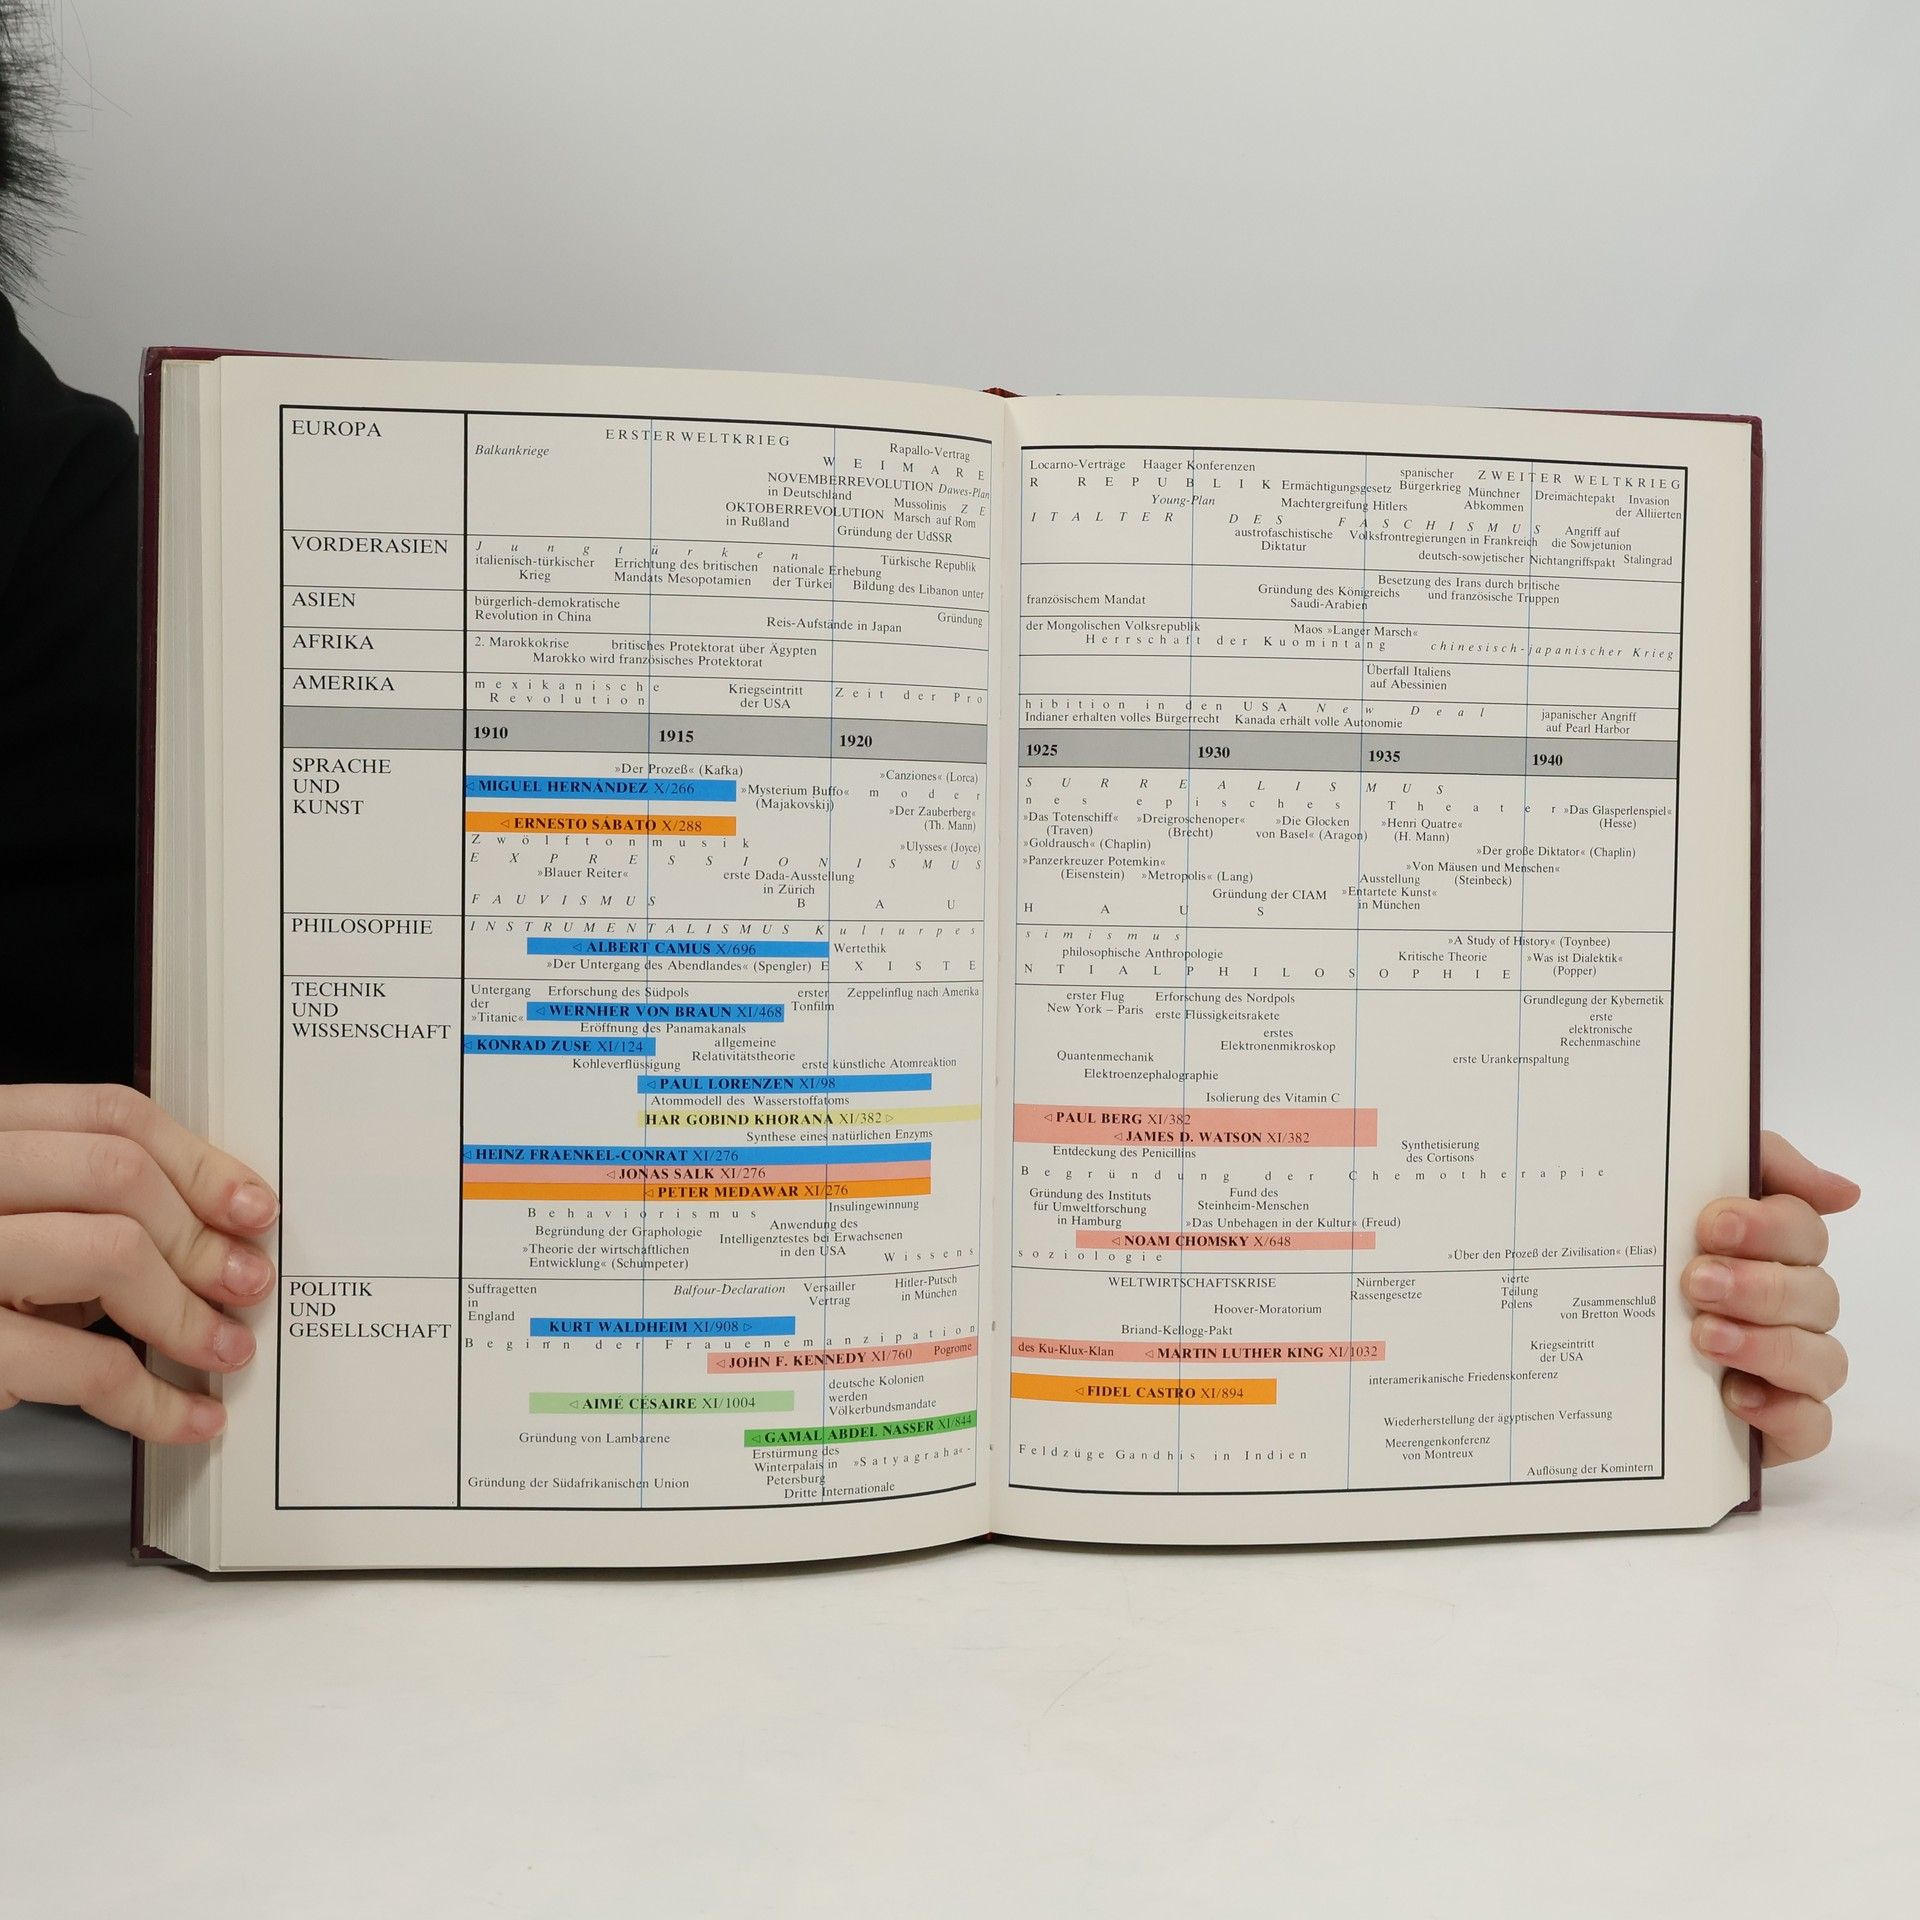 EUROPA
ERSTER WELTKRIEG
Balkankriege
Rapallo-Vertrag
WEIMARE
NOVEMBERREVOLUTION Dawes-Plan
in Deutschland
Mussolinis ZE
OKTOBERREVOLUTION Marsch auf Rom
in Rußland
Gründung der UdSSR
Locarno-Verträge Haager Konferenzen
spanischer ZWEITER WELTKRIEG
R REPUBLIK Ermächtigungsgesetz Bürgerkrieg Münchner Dreimächtepakt Invasion
Young-Plan Machtergreifung Hitlers Abkommen der Alliierten
ITALTER DES FASCHISMUS Angriff auf
austrofaschistische Volksfrontregierungen in Frankreich die Sowjetunion
Diktatur
deutsch-sowjetischer Nichtangriffspakt Stalingrad
VORDERASIEN
Jungtürken
Türkische Republik
italienisch-türkischer Errichtung des britischen nationale Erhebung
Krieg Mandats Mesopotamien der Türkei Bildung des Libanon unter
französischem Mandat
Gründung des Königreichs
Saudi-Arabien
Besetzung des Irans durch britische
und französische Truppen
ASIEN
bürgerlich-demokratische
Revolution in China
Reis-Aufstände in Japan
Gründung
der Mongolischen Volksrepublik Maos »Langer Marsch«
Herrschaft der Kuomintang chinesisch-japanischer Krieg
AFRIKA
2. Marokkokrise britisches Protektorat über Ägypten
Marokko wird französisches Protektorat
Überfall Italiens
auf Abessinien
AMERIKA
mexikanische
Revolution
Kriegseintritt
der USA
Zeit der Pro
hibition in den USA New Deal
Indianer erhalten volles Bürgerrecht Kanada erhält volle Autonomie
japanischer Angriff
auf Pearl Harbor
1910 1915 1920 1925 1930 1935 1940
SPRACHE
UND
KUNST
»Der Prozeß« (Kafka)
»Canziones« (Lorca)
◁ MIGUEL HERNÁNDEZ X/266
»Mysterium Buffo« moder
(Majakovskij)
»Der Zauberberg«
(Th. Mann)
◁ ERNESTO SÁBATO X/288
Zwölftonmusik
»Ulysses« (Joyce)
EXPRESSIONISMUS
»Blauer Reiter«
erste Dada-Ausstellung
in Zürich
FAUVISMUS
BAU
SURREALISMUS
nes episches Theater »Das Glasperlenspiel«
(Hesse)
»Das Totenschiff«
(Traven)
»Dreigroschenoper«
(Brecht)
»Die Glocken
von Basel« (Aragon)
»Henri Quatre«
(H. Mann)
»Goldrausch« (Chaplin)
»Der große Diktator« (Chaplin)
»Panzerkreuzer Potemkin«
(Eisenstein)
»Metropolis« (Lang)
»Von Mäusen und Menschen«
(Steinbeck)
Gründung der CIAM
Ausstellung
»Entartete Kunst«
in München
HAUS
PHILOSOPHIE
INSTRUMENTALISMUS Kulturpes
◁ ALBERT CAMUS X/696
Wertethik
»Der Untergang des Abendlandes« (Spengler) EXISTE
simismus
philosophische Anthropologie
»A Study of History« (Toynbee)
Kritische Theorie »Was ist Dialektik«
(Popper)
NTIALPHILOSOPHIE
TECHNIK
UND
WISSENSCHAFT
Untergang
der
»Titanic«
Erforschung des Südpols
erster
Tonfilm
Zeppelinflug nach Amerika
◁ WERNHER VON BRAUN XI/468
Eröffnung des Panamakanals
◁ KONRAD ZUSE XI/124
allgemeine
Relativitätstheorie
Kohleverflüssigung
erste künstliche Atomreaktion
◁ PAUL LORENZEN XI/98
Atommodell des Wasserstoffatoms
HAR GOBIND KHORANA XI/382 ▷
Synthese eines natürlichen Enzyms
◁ HEINZ FRAENKEL-CONRAT XI/276
◁ JONAS SALK XI/276
◁ PETER MEDAWAR XI/276
Insulingewinnung
Behaviorismus
Begründung der Graphologie
Anwendung des
Intelligenztestes bei Erwachsenen
in den USA
»Theorie der wirtschaftlichen
Entwicklung« (Schumpeter)
Wissens
erster Flug
New York – Paris
Erforschung des Nordpols
erste Flüssigkeitsrakete
erstes
Elektronenmikroskop
Grundlegung der Kybernetik
erste
elektronische
Rechenmaschine
Quantenmechanik
erste Urankernspaltung
Elektroenzephalographie
Isolierung des Vitamin C
◁ PAUL BERG XI/382
◁ JAMES D. WATSON XI/382
Entdeckung des Penicillins
Synthetisierung
des Cortisons
Begründung der Chemotherapie
Gründung des Instituts
für Umweltforschung
in Hamburg
Fund des
Steinheim-Menschen
»Das Unbehagen in der Kultur« (Freud)
◁ NOAM CHOMSKY X/648
soziologie
»Über den Prozeß der Zivilisation« (Elias)
POLITIK
UND
GESELLSCHAFT
Suffragetten
in
England
Balfour-Declaration
Versailler
Vertrag
Hitler-Putsch
in München
KURT WALDHEIM XI/908 ▷
Beginn der Frauenemanzipation
◁ JOHN F. KENNEDY XI/760 Pogrome
deutsche Kolonien
werden
Völkerbundsmandate
◁ AIMÉ CÉSAIRE XI/1004
◁ GAMAL ABDEL NASSER XI/844
Gründung von Lambarene
Erstürmung des
Winterpalais in
Petersburg
»Satyagraha«-
Gründung der Südafrikanischen Union
Dritte Internationale
WELTWIRTSCHAFTSKRISE
Nürnberger
Rassengesetze
vierte
Teilung
Polens
Hoover-Moratorium
Zusammenschluß
von Bretton Woods
Briand-Kellogg-Pakt
des Ku-Klux-Klan ◁ MARTIN LUTHER KING XI/1032
Kriegseintritt
der USA
◁ FIDEL CASTRO XI/894
interamerikanische Friedenskonferenz
Wiederherstellung der ägyptischen Verfassung
Feldzüge Gandhis in Indien
Meerengenkonferenz
von Montreux
Auflösung der Komintern